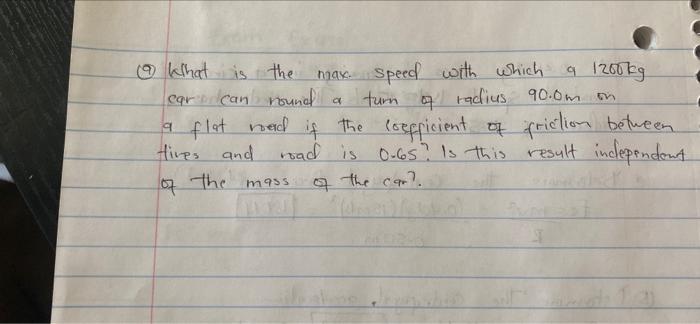 (9) What is the max. speed with which a 1200kg
car can round a turn of radius 90.0m on
a flat road if the coefficient of friction between
tires and road is 0.65? Is this result independent
of the mass of the car?.